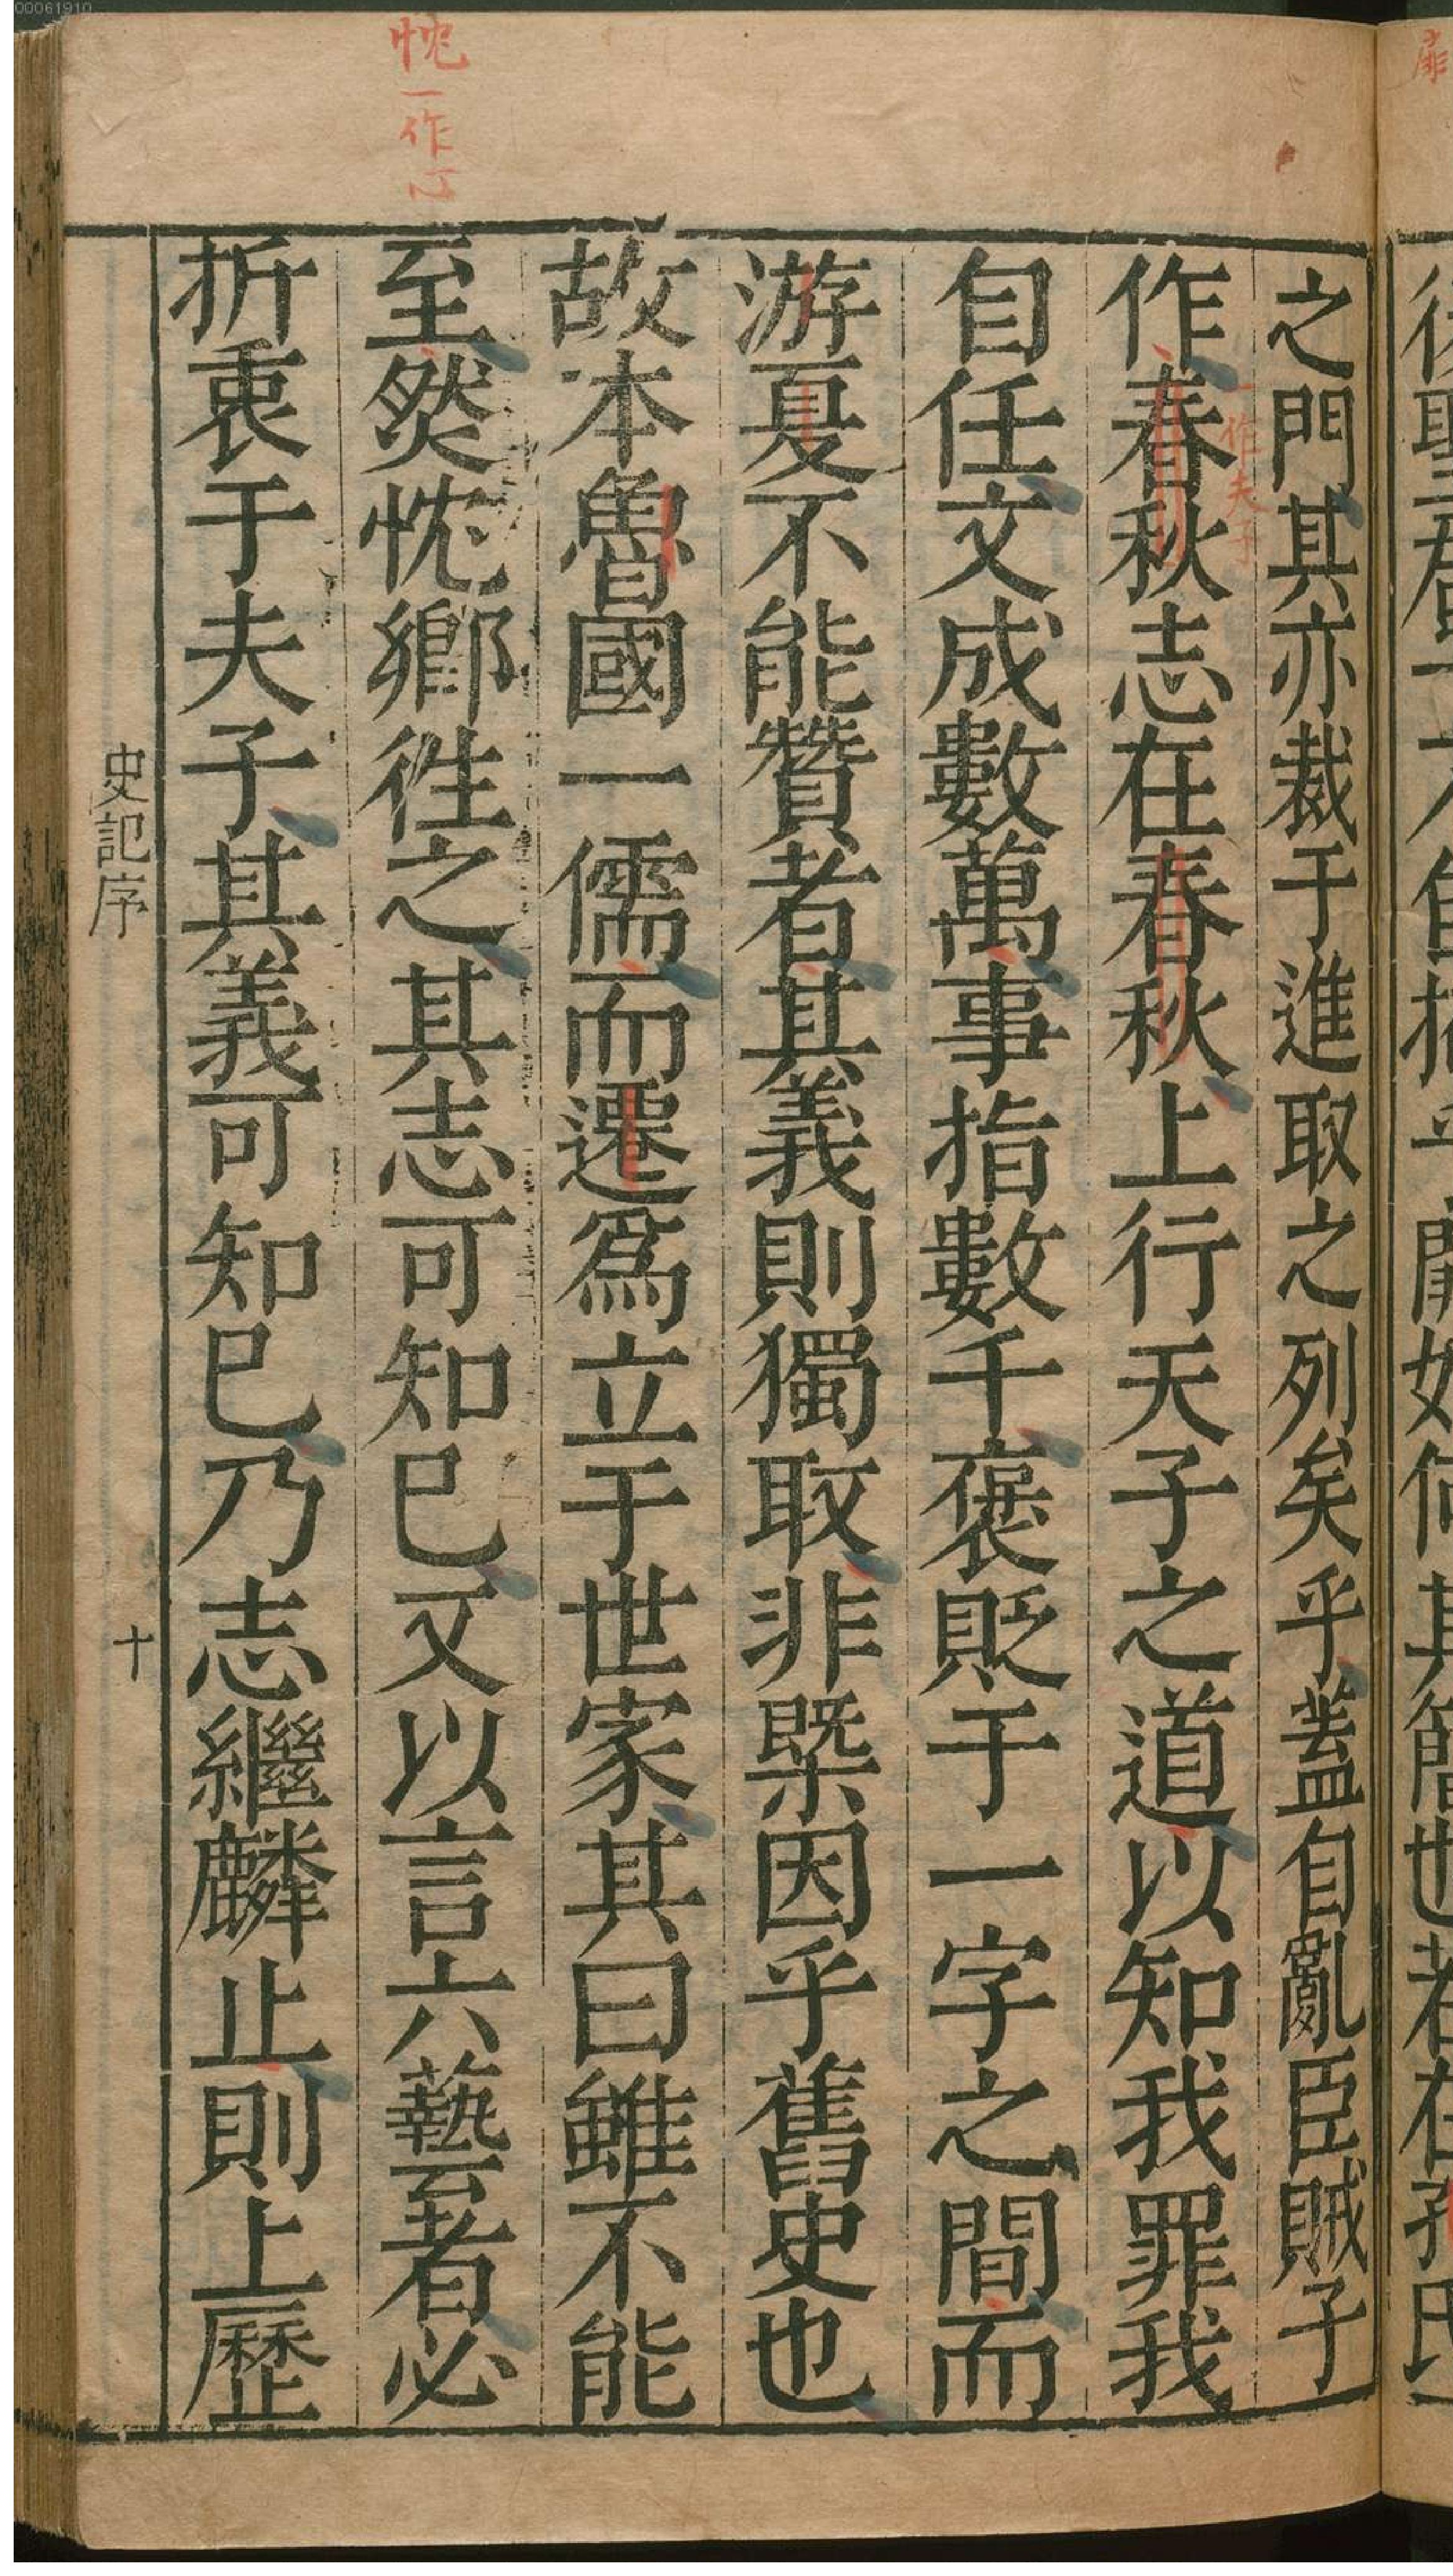 之門其亦裁于進取之列矣乎蓋自亂臣賊子
作春秋志在春秋上行天子之道以知我罪我
自任文成數萬事指數千褒貶于一字之間而
游夏不能贊者其義則獨取非槩因乎舊史也
故本魯國一儒而遷爲立于世家其曰雖不能
至然忱鄉徃之其志可知已又以言六藝者必
折衷于夫子其義可知已乃志繼麟止則上歷
史記序
十
忱一作心
一作夫子
00061910